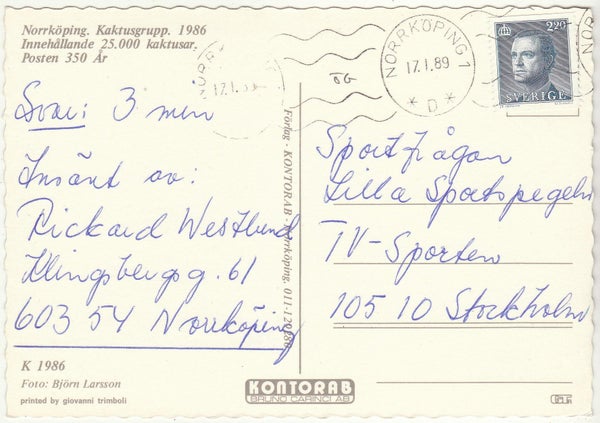 Norrköping. Kaktusgrupp. 1986
Innehållande 25.000 kaktusar.
Posten 350 År
Svar: 3 min
Insänt av:
Rickard Westlund
Klingsbergsg. 61
603 54 Norrköping
K 1986
Foto: Björn Larsson
printed by giovanni trimboli
Förlag - KONTORAB - Norrköping. 011-12
KONTORAB
BRUNO CARINCI AB
NORRKÖPING 1
17.1.89
* D *
ÖG
2.20
SVERIGE
Sportfrågan
Lilla Sportspegeln
TV-Sporten
105 10 Stockholm